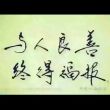 与人良善
终得福报